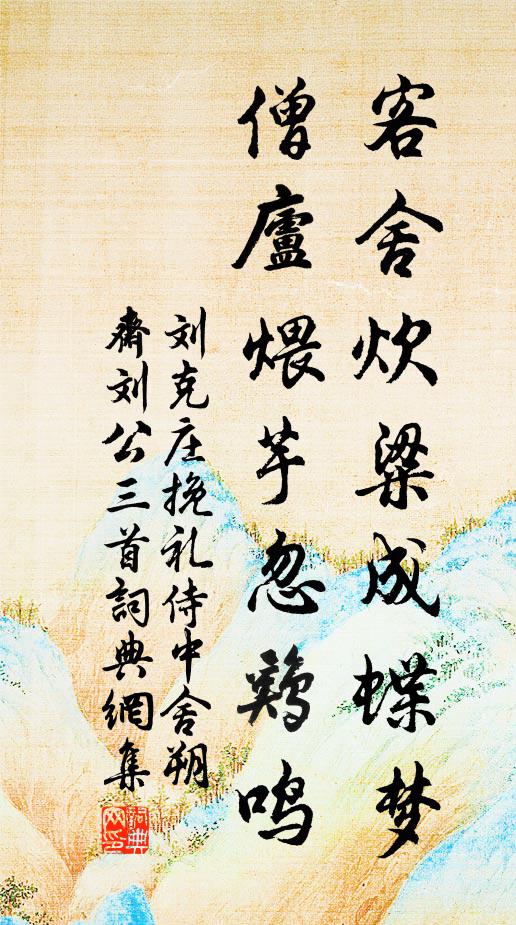 客舍炊粱成蝶梦
僧廬煨芋忽鷄鳴
刘克庄挽礼侍中舍朔
齋刘公三首詞典網集
詞典网印